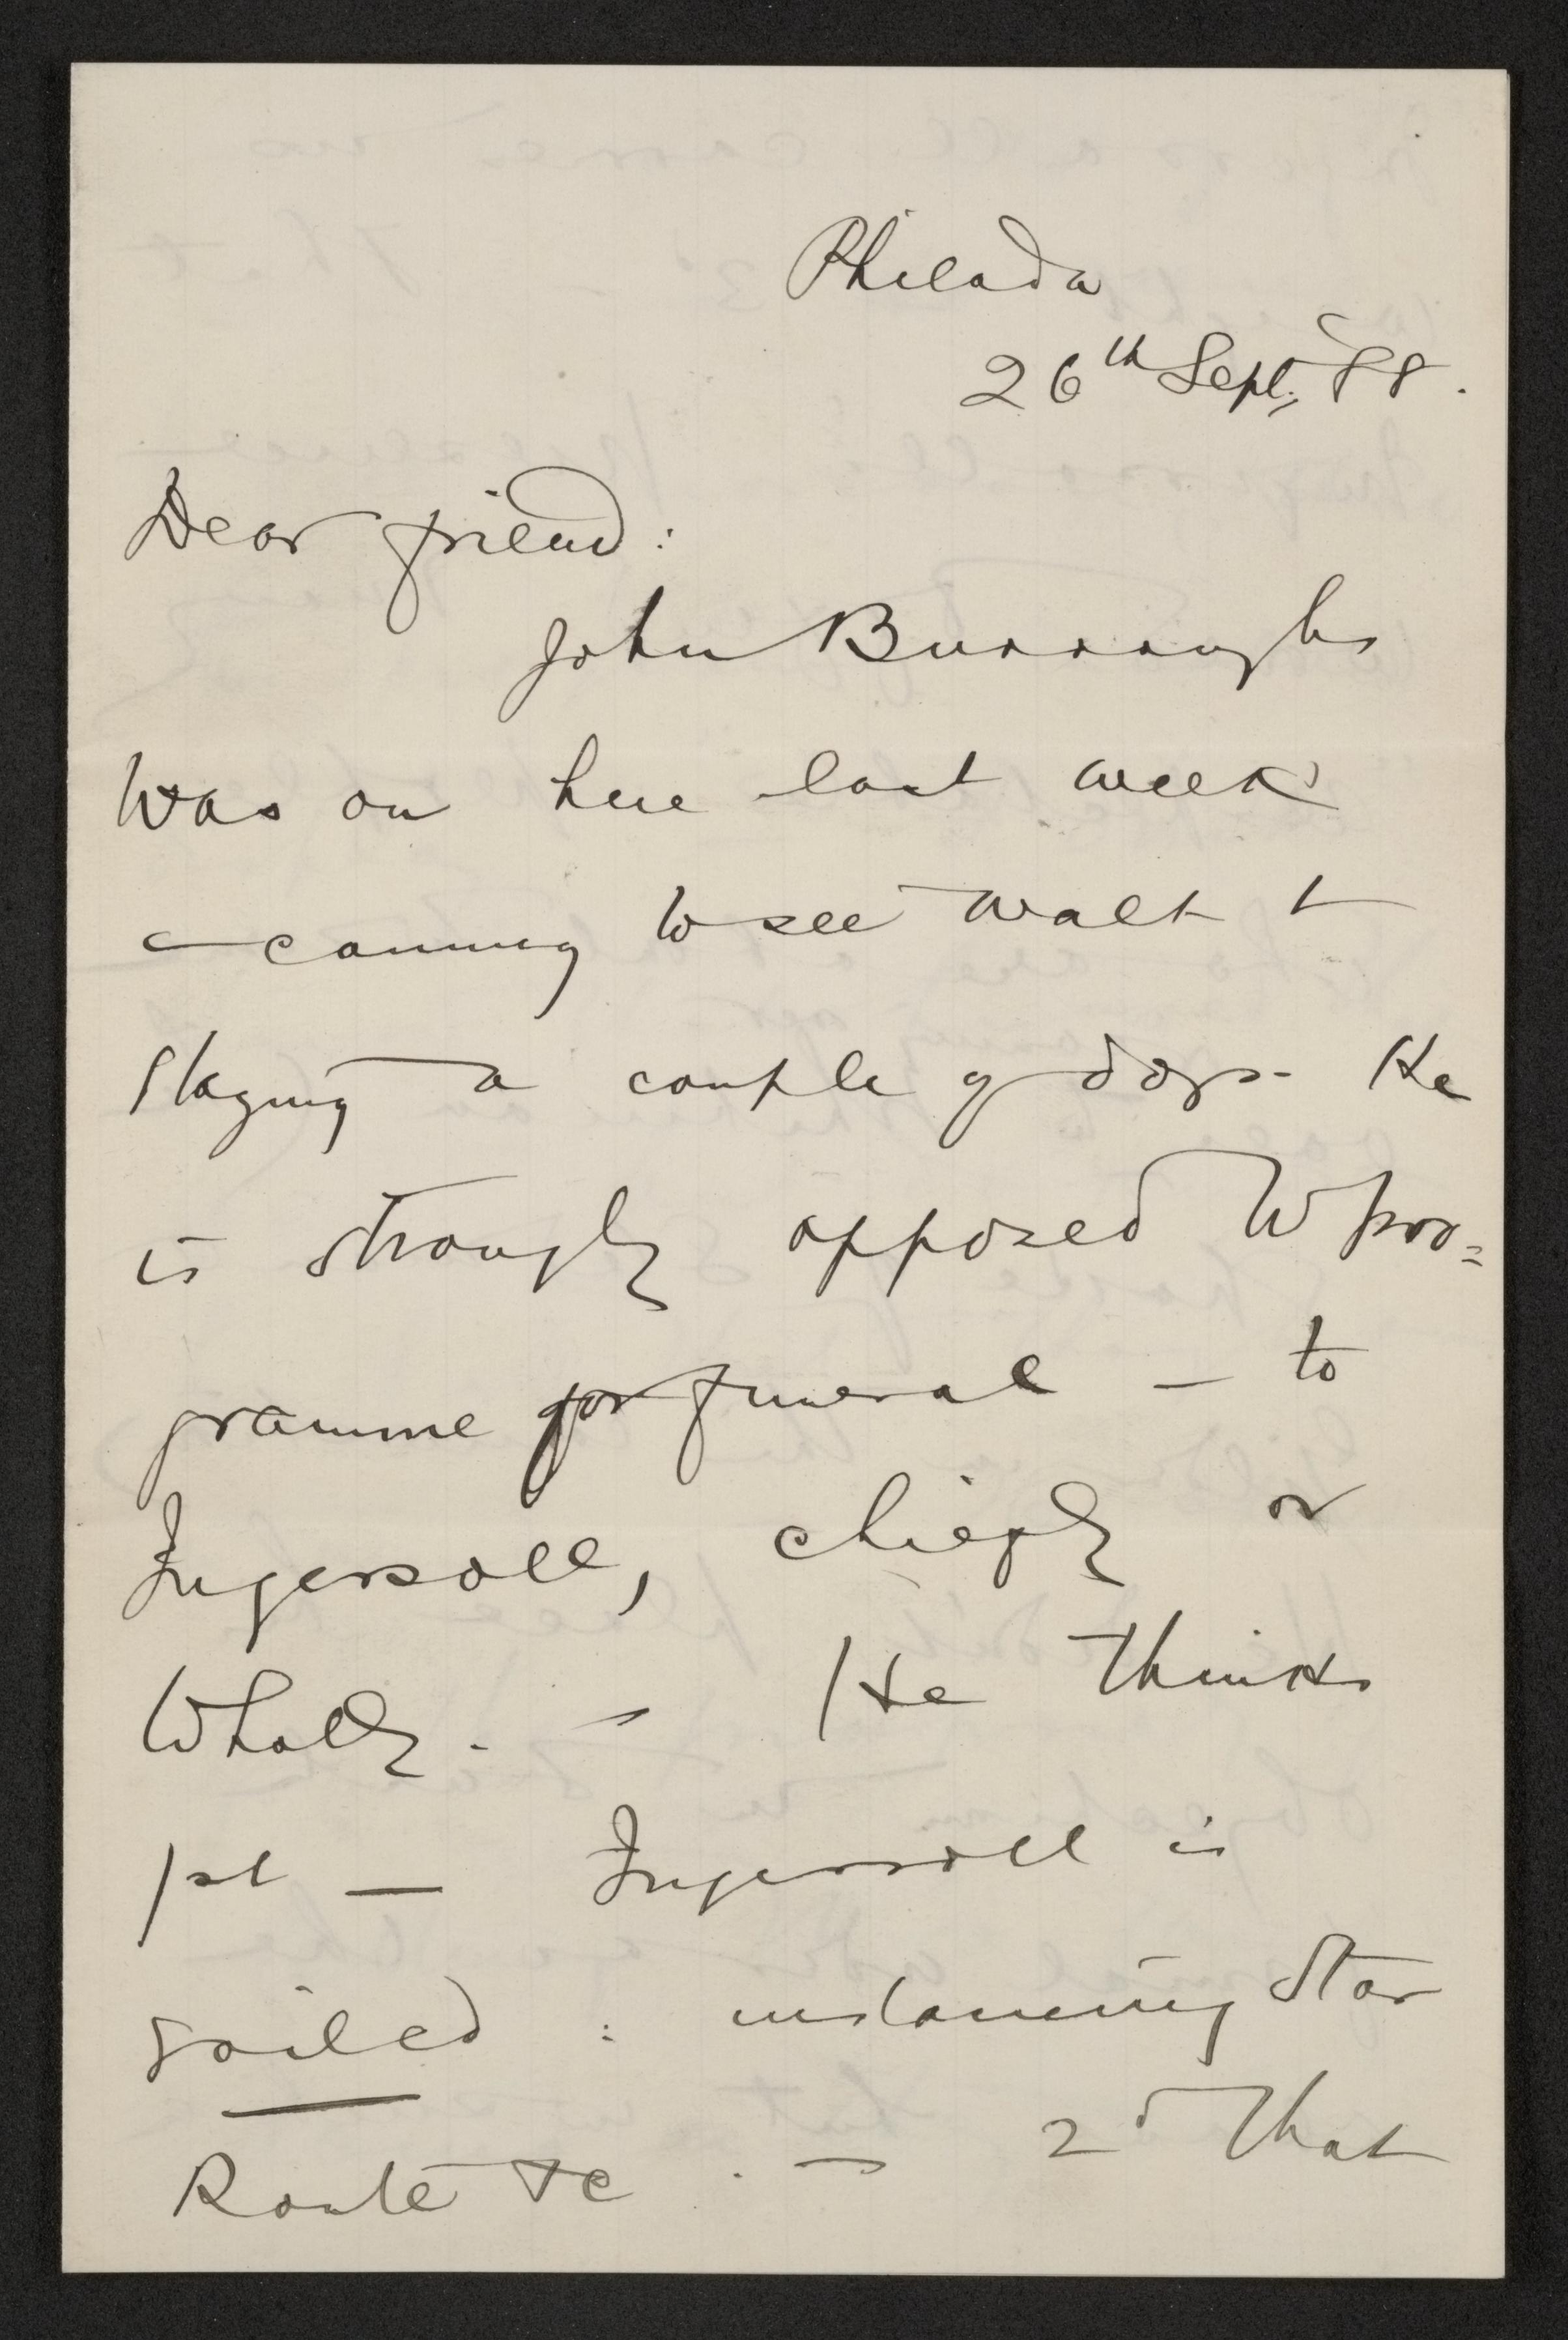 Philada
26th Sept, '88.
Dear friend:
John Burroughs
was on here last week
— coming to see Walt &
staying a couple of days. He
is strongly opposed to pro=
gramme for funeral — to
Ingersoll, chiefly or
wholly. — He thinks
1st — Ingersoll is
soiled: instancing Star
Route &c. — 2d That